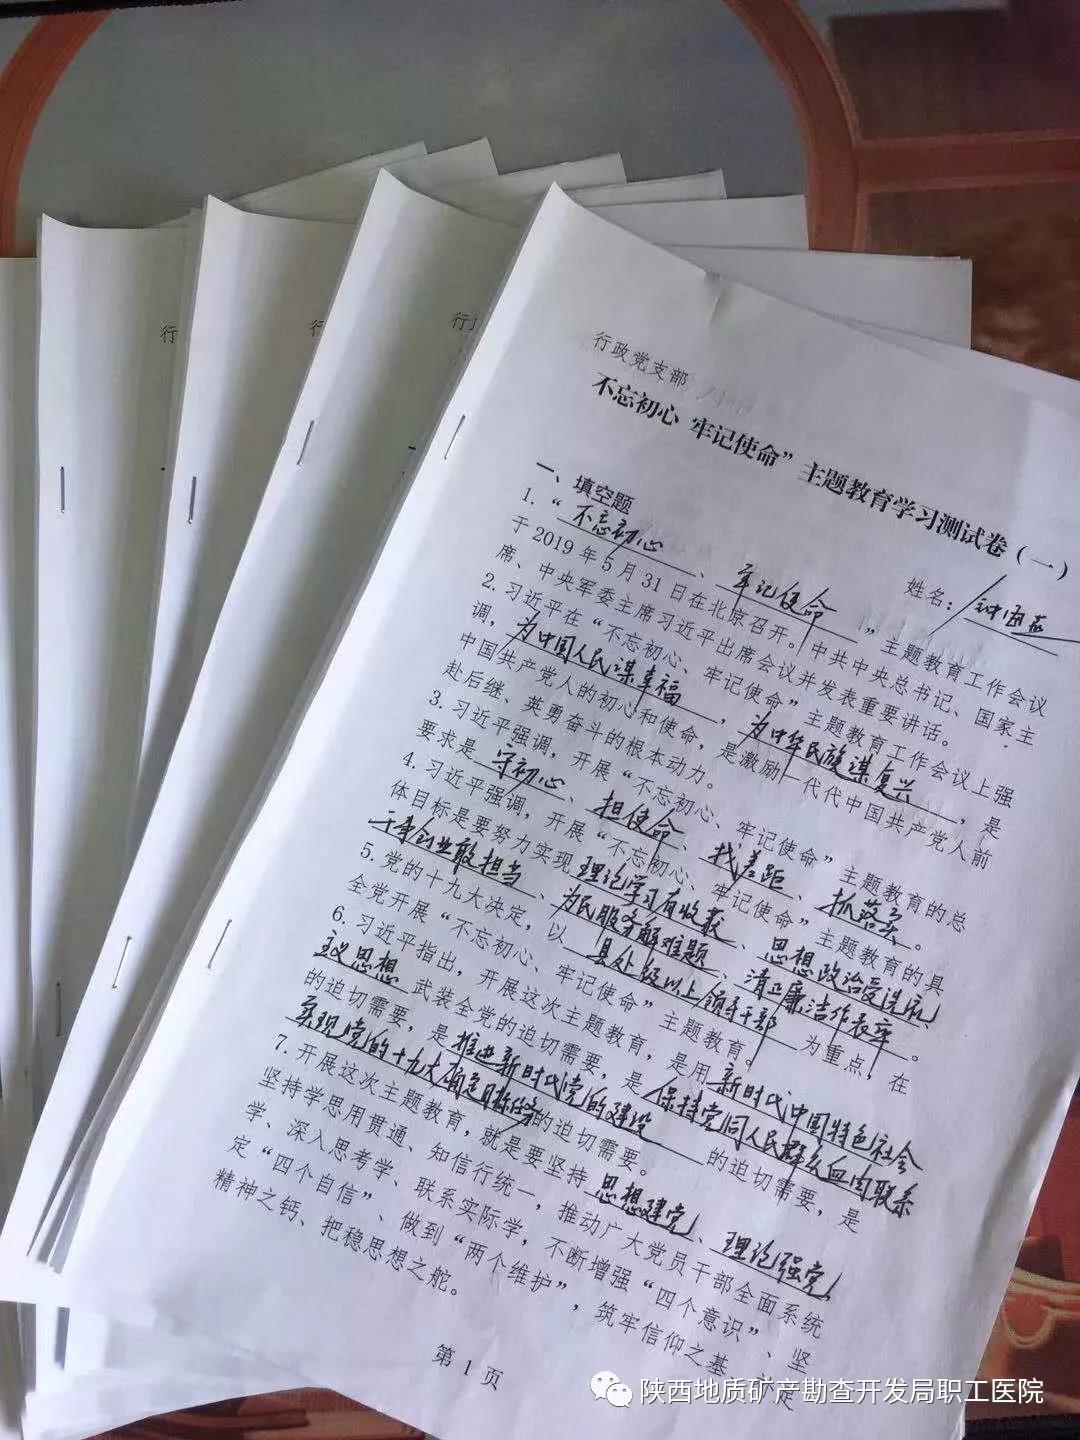 行
行
行
行政党支部
不忘初心 牢记使命”主题教育学习测试卷(一)
姓名:
一、填空题
1.“不忘初心、牢记使命”主题教育工作会议
于2019年5月31日在北京召开。中共中央总书记、国家主
席、中央军委主席习近平出席会议并发表重要讲话。
2.习近平在“不忘初心、牢记使命”主题教育工作会议上强
调,为中国人民谋幸福,为中华民族谋复兴,是
中国共产党人的初心和使命,是激励一代代中国共产党人前
赴后继、英勇奋斗的根本动力。
3.习近平强调,开展“不忘初心、牢记使命”主题教育的总
要求是守初心、担使命、找差距、抓落实。
4.习近平强调,开展“不忘初心、牢记使命”主题教育的具
体目标是要努力实现理论学习有收获、思想政治受洗礼、
干事创业敢担当、为民服务解难题、清正廉洁作表率。
5.党的十九大决定,以县处级以上领导干部为重点,在
全党开展“不忘初心、牢记使命”主题教育。
6.习近平指出,开展这次主题教育,是用新时代中国特色社会
主义思想武装全党的迫切需要,是推进新时代党的建设
的迫切需要,是保持党同人民群众血肉联系的迫切需要,是
实现党的十九大确定目标任务的迫切需要。
7.开展这次主题教育,就是要坚持思想建党、理论强党,
坚持学思用贯通、知信行统一,推动广大党员干部全面系统
学、深入思考学、联系实际学,不断增强“四个意识”、坚
定“四个自信”、做到“两个维护”,筑牢信仰之基
精神之钙、把稳思想之舵。
第 1 页
陕西地质矿产勘查开发局职工医院